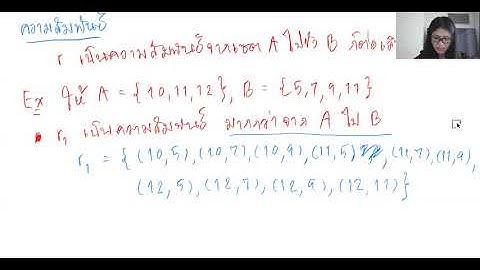 ความสัมพันธ์
r เป็นความสัมพันธ์จากเซต A ไปยัง B ก็ต่อเมื่อ
Ex ให้ A = {10,11,12}, B = {5,7,9,11}
• r₁ เป็นความสัมพันธ์ มากกว่าจาก A ไป B
r₁ = { (10,5),(10,7),(10,9),(11,5),(11,7),(11,9),
(12,5),(12,7),(12,9),(12,11)}